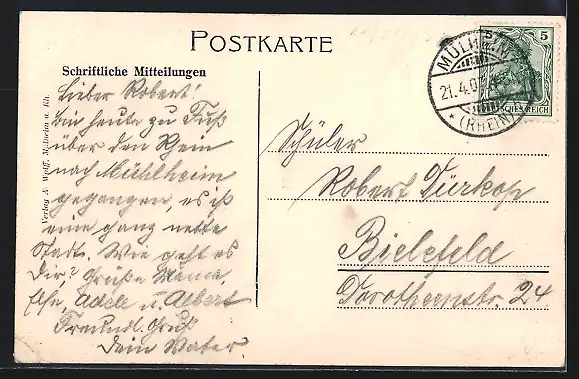 POSTKARTE
Schriftliche Mitteilungen
Lieber Robert!
bin heute zu Fuß
über den Rhein
nach Mühlheim
gegangen, es ist
eine ganz nette
Stadt. Wie geht es
Dir? Grüße Mama,
Else, Adele u. Albert
Freundl. Gruß
Dein Vater
Verlag A. Wolff, Mülheim a. Rh.
5
MÜLHEIM
21.4.0
* (RHEIN)
CHES REICH
Schüler
Robert Dürkop
Bielefeld
Dorotheenstr. 24